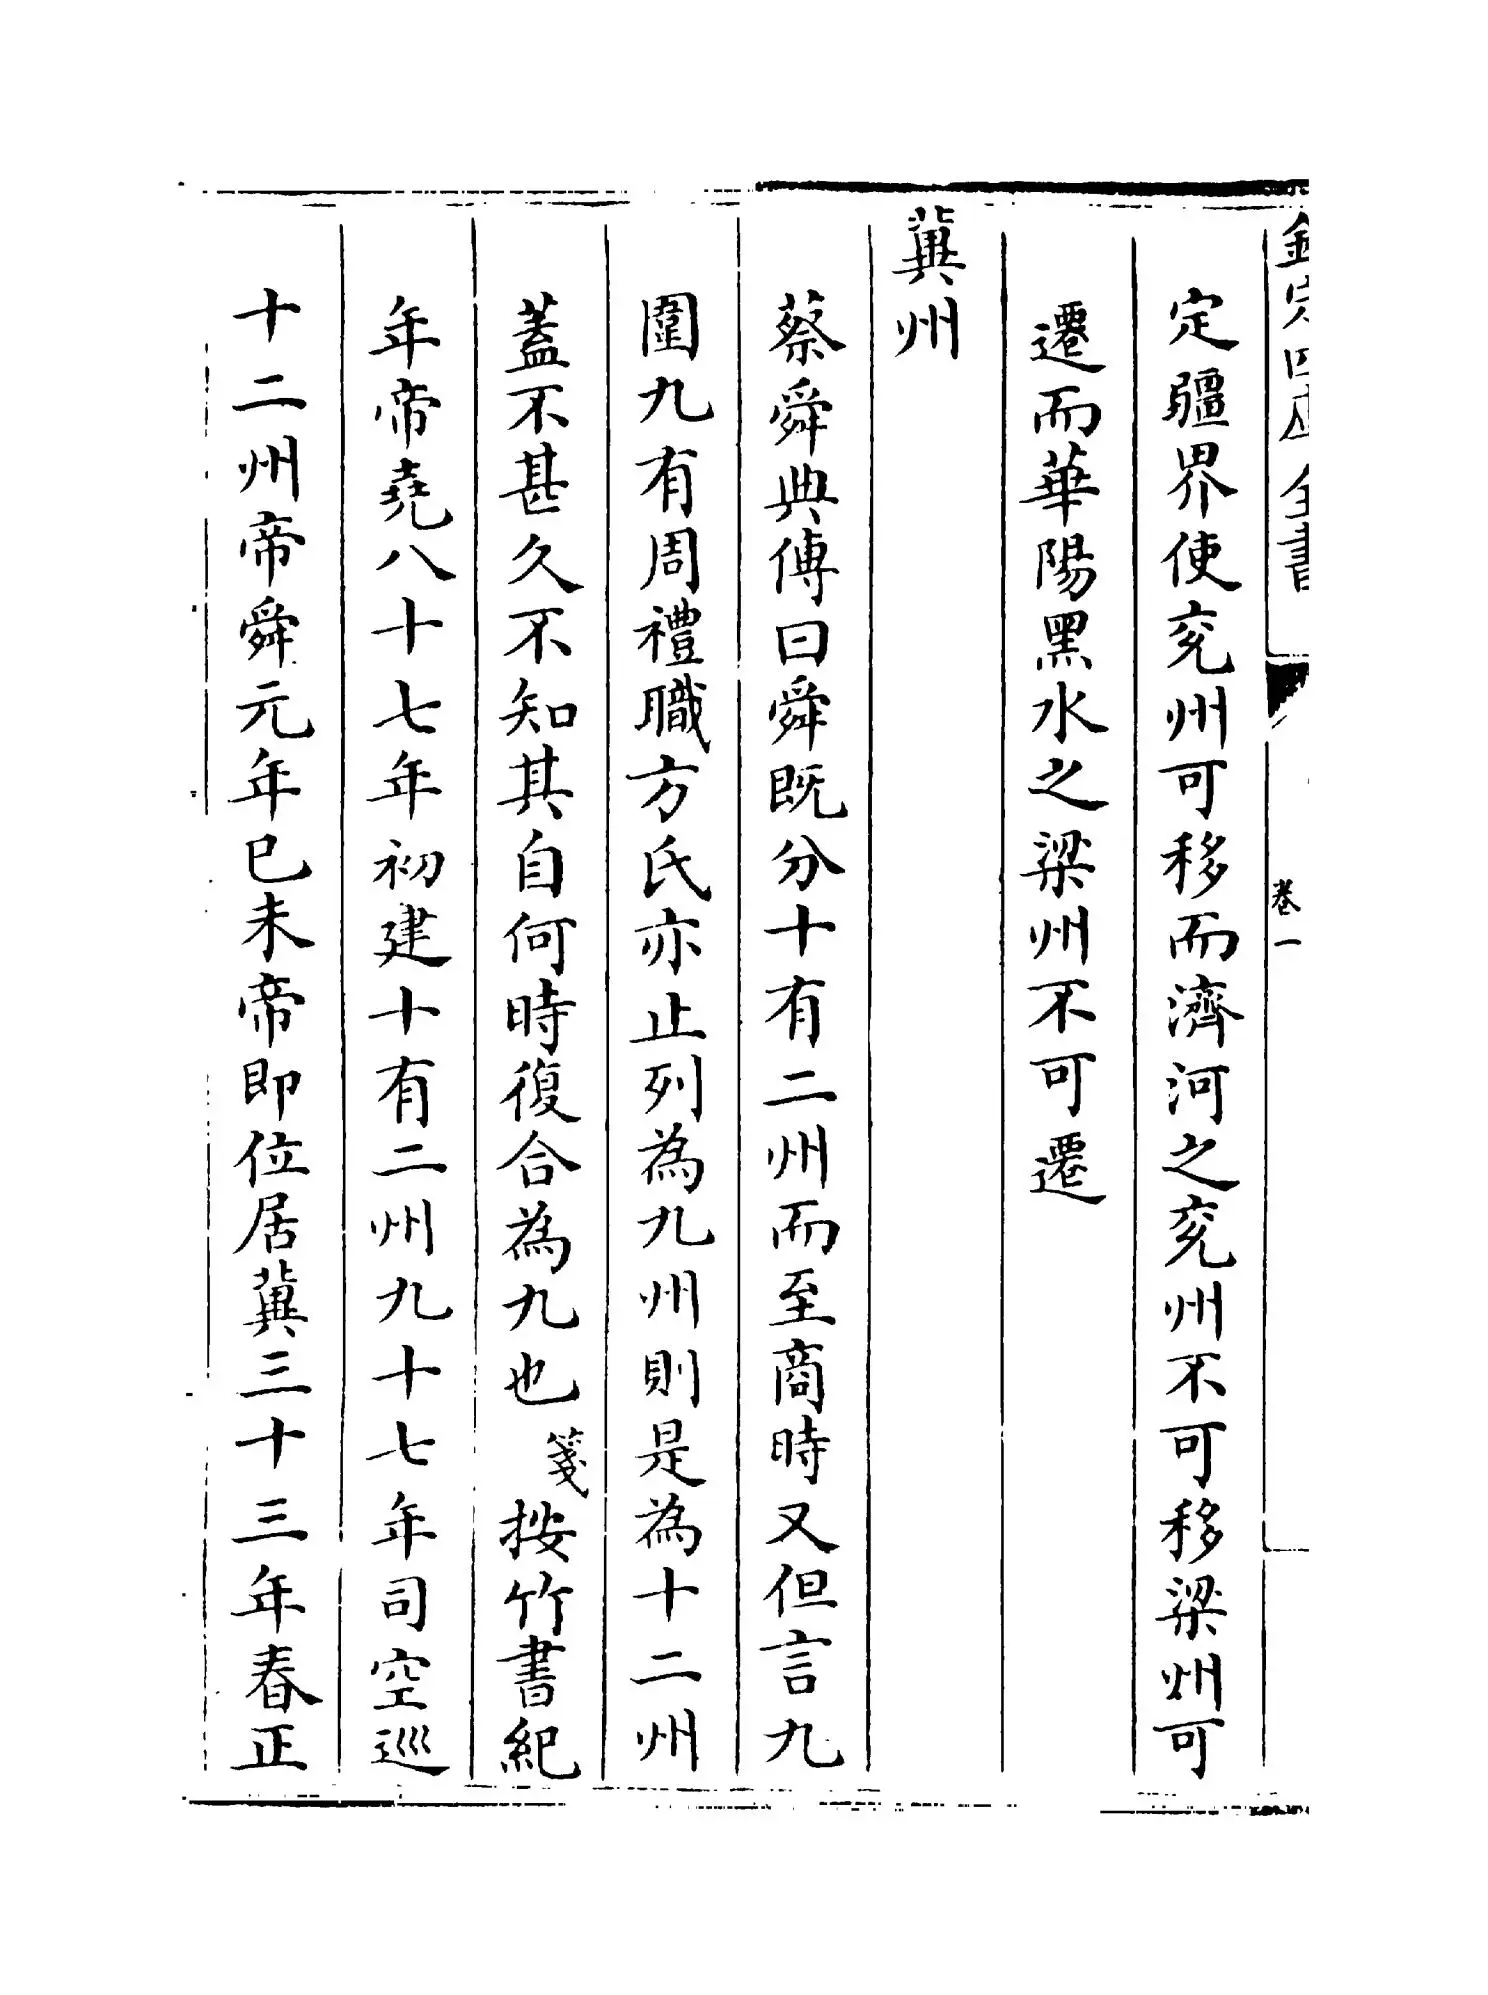 欽定四庫全書
卷一
定疆界使兖州可移而濟河之兖州不可移梁州可
遷而華陽黑水之梁州不可遷
冀州
蔡舜典傳曰舜既分十有二州而至商時又但言九
圍九有周禮職方氏亦止列為九州則是為十二州
蓋不甚久不知其自何時復合為九也 箋按竹書紀
年帝堯八十七年初建十有二州九十七年司空巡
十二州帝舜元年已未帝即位居冀三十三年春正